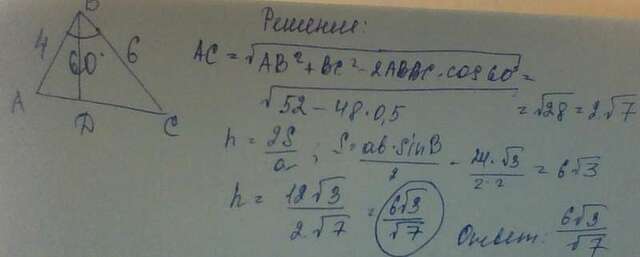 Решение:
B
4 60° 6
A D C
AC = √AB² + BC² - 2ABBC · cos60° =
√52 - 48 · 0,5 = √28 = 2√7
h = 2S/a ; S = ab · sinB/2 - 24 · √3/2 · 2 = 6√3
h = 12√3/2√7 = 6√3/√7 Ответ: 6√3/√7